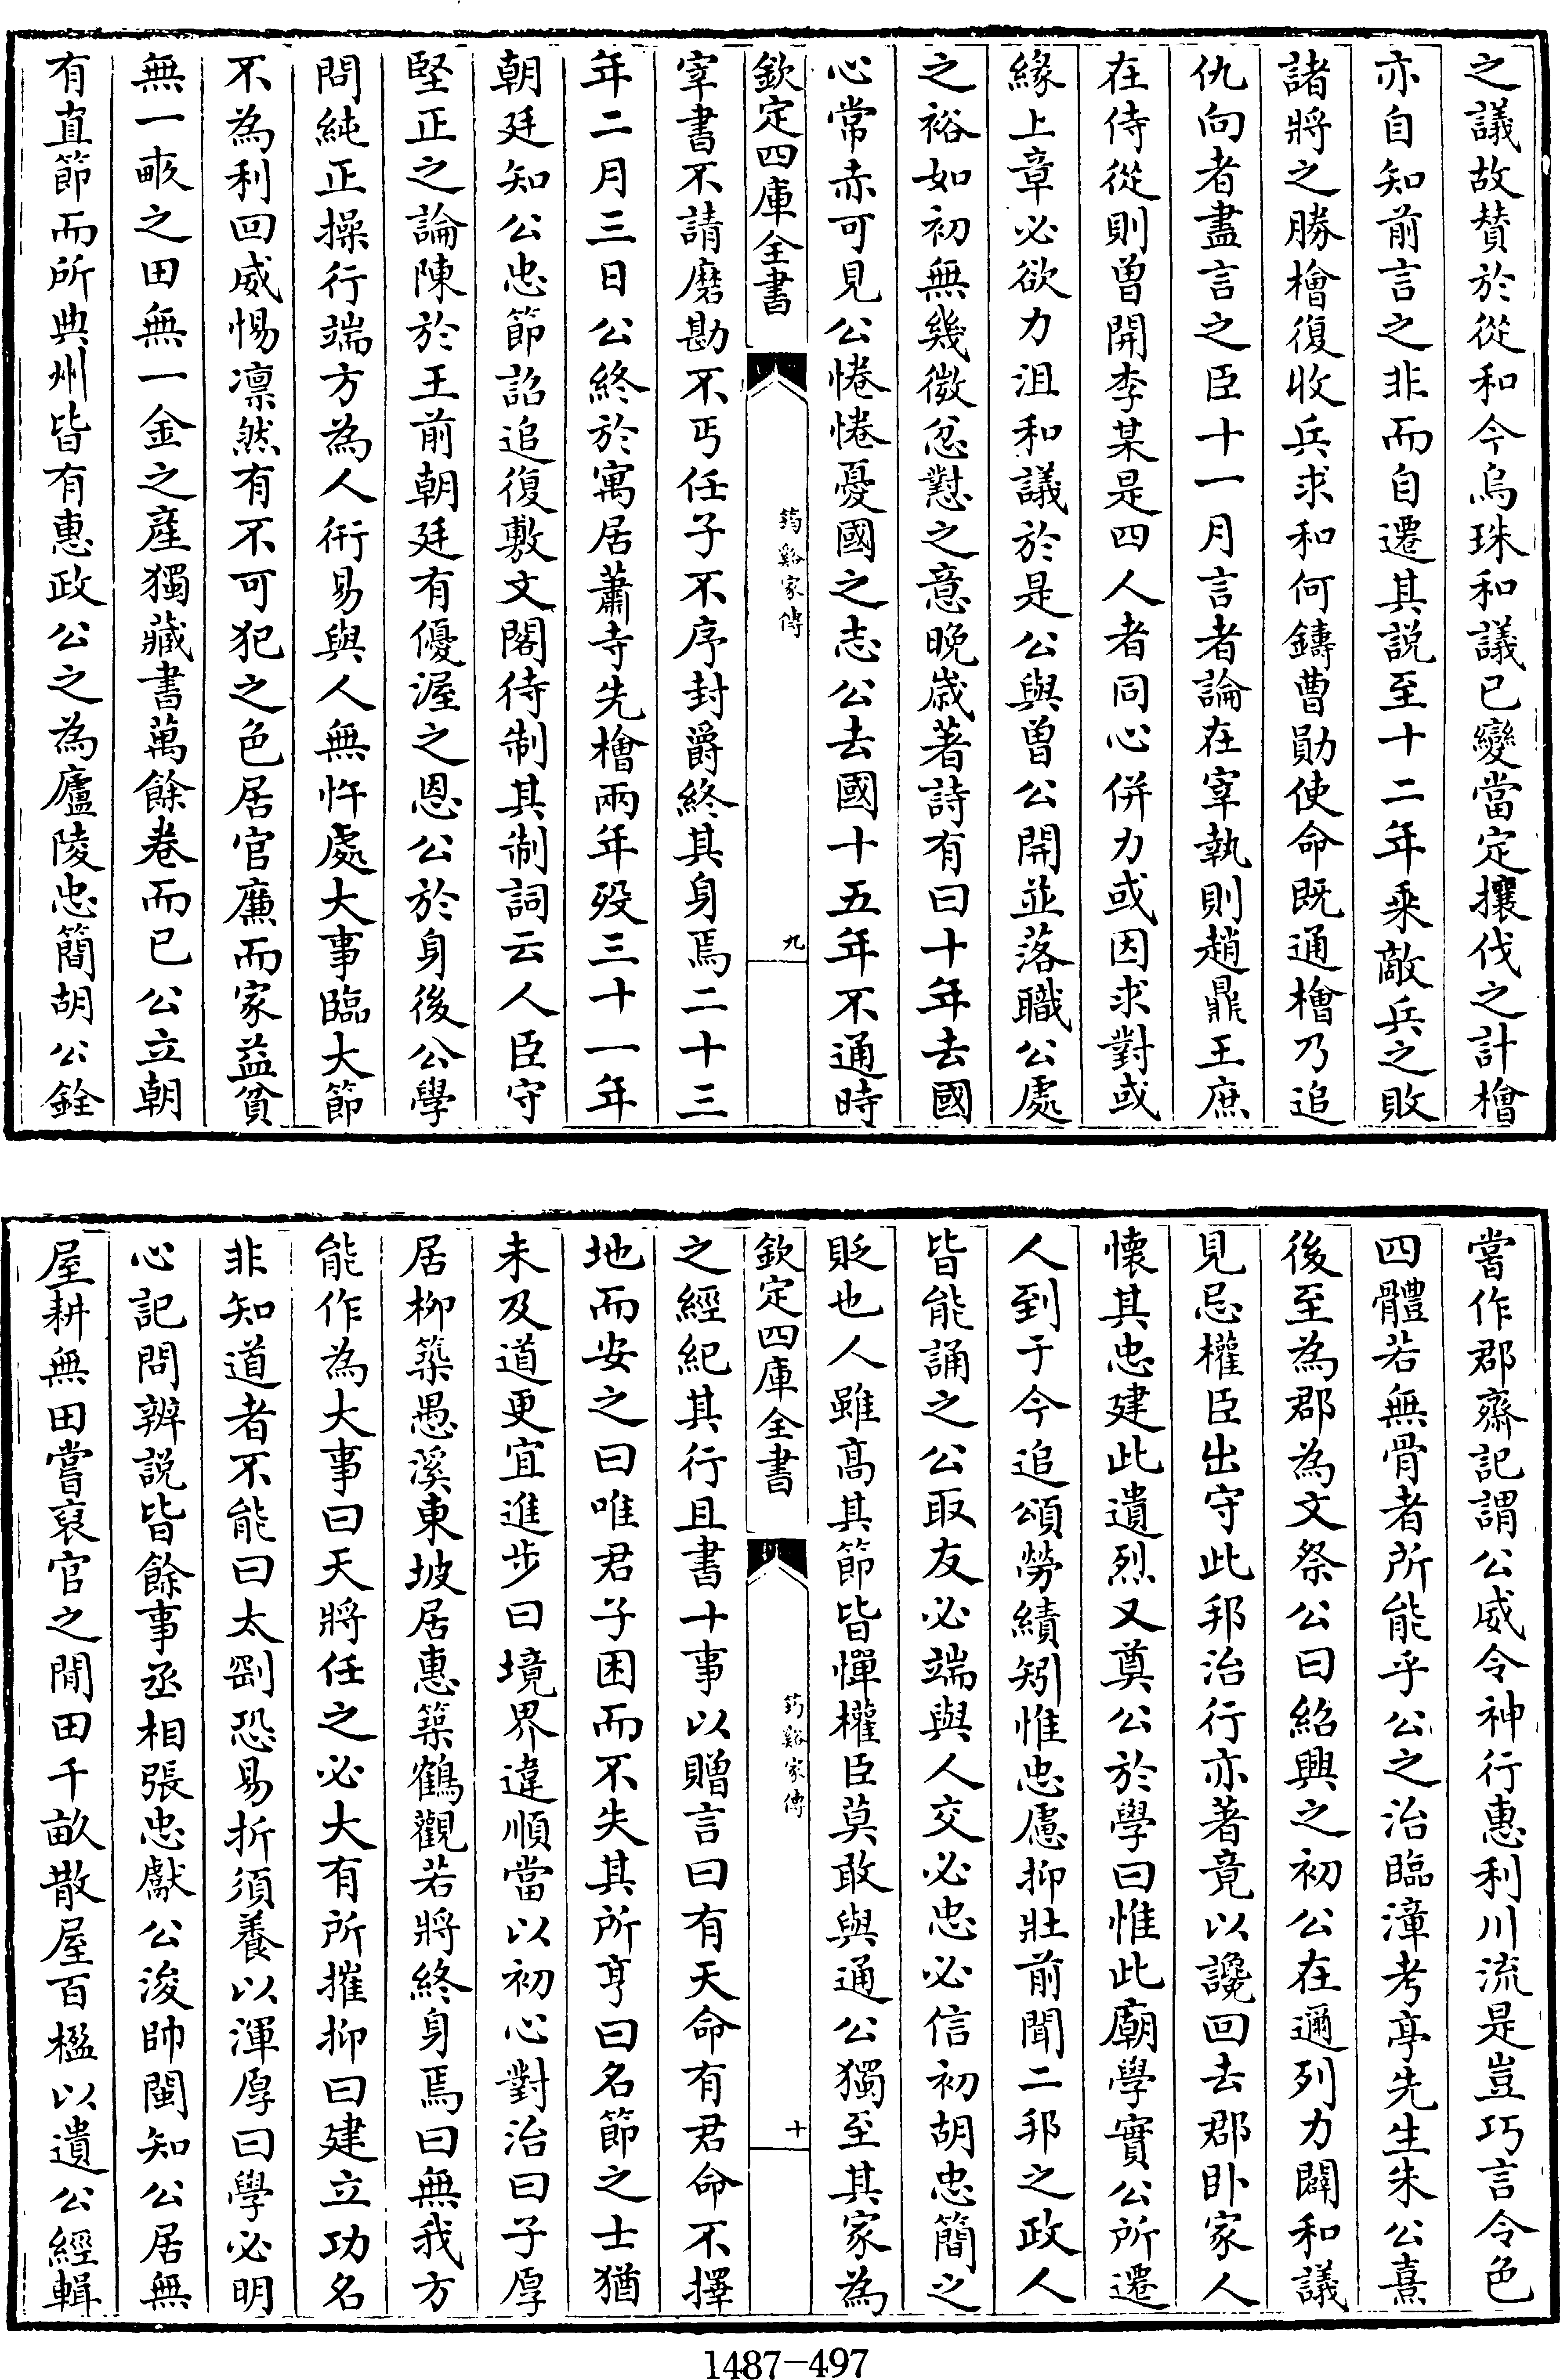 之議故贊於從和今烏珠和議已變當定攘伐之計檜
亦自知前言之非而自遷其説至十二年乘敵兵之敗
諸將之勝檜復收兵求和何鑄曹勛使命既通檜乃追
仇向者盡言之臣十一月言者論在宰執則趙鼎王庶
在侍從則曾開李某是四人者同心併力或因求對或
緣上章必欲力沮和議於是公與曾公開並落職公處
之裕如初無幾微忿懟之意晚歲著詩有曰十年去國
心常赤可見公惓惓憂國之志公去國十五年不通時
欽定四庫全書
筠谿家傳
九
宰書不請磨勘不丐任子不序封爵終其身焉二十三
年二月三日公終於寓居蕭寺先檜兩年殁三十一年
朝廷知公忠節詔追復敷文閣待制其制詞云人臣守
堅正之論陳於王前朝廷有優渥之恩公於身後公學
問純正操行端方為人衎易與人無忤處大事臨大節
不為利回威惕凛然有不可犯之色居官廉而家益貧
無一畞之田無一金之産獨藏書萬餘卷而已公立朝
有直節而所典州皆有惠政公之為廬陵忠簡胡公銓
嘗作郡齋記謂公威令神行惠利川流是豈巧言令色
四體若無骨者所能乎公之治臨漳考亭先生朱公熹
後至為郡為文祭公曰紹興之初公在邇列力闢和議
見忌權臣出守此邦治行亦著竟以讒回去郡卧家人
懐其忠建此遺烈又奠公於學曰惟此廟學實公所遷
人到于今追頌勞績矧惟忠慮抑壯前聞二邦之政人
皆能誦之公取友必端與人交必忠必信初胡忠簡之
貶也人雖髙其節皆憚權臣莫敢與通公獨至其家為
欽定四庫全書
筠谿家傳
十
之經紀其行且書十事以贈言曰有天命有君命不擇
地而安之曰唯君子困而不失其所亨曰名節之士猶
未及道更宜進步曰境界違順當以初心對治曰子厚
居柳築愚溪東坡居惠築鶴觀若將終身焉曰無我方
能作為大事曰天將任之必大有所摧抑曰建立功名
非知道者不能曰太剛恐易折須養以渾厚曰學必明
心記問辨説皆餘事丞相張忠獻公浚帥閩知公居無
屋耕無田嘗裒官之閒田千畝散屋百楹以遺公經輯
1487-497